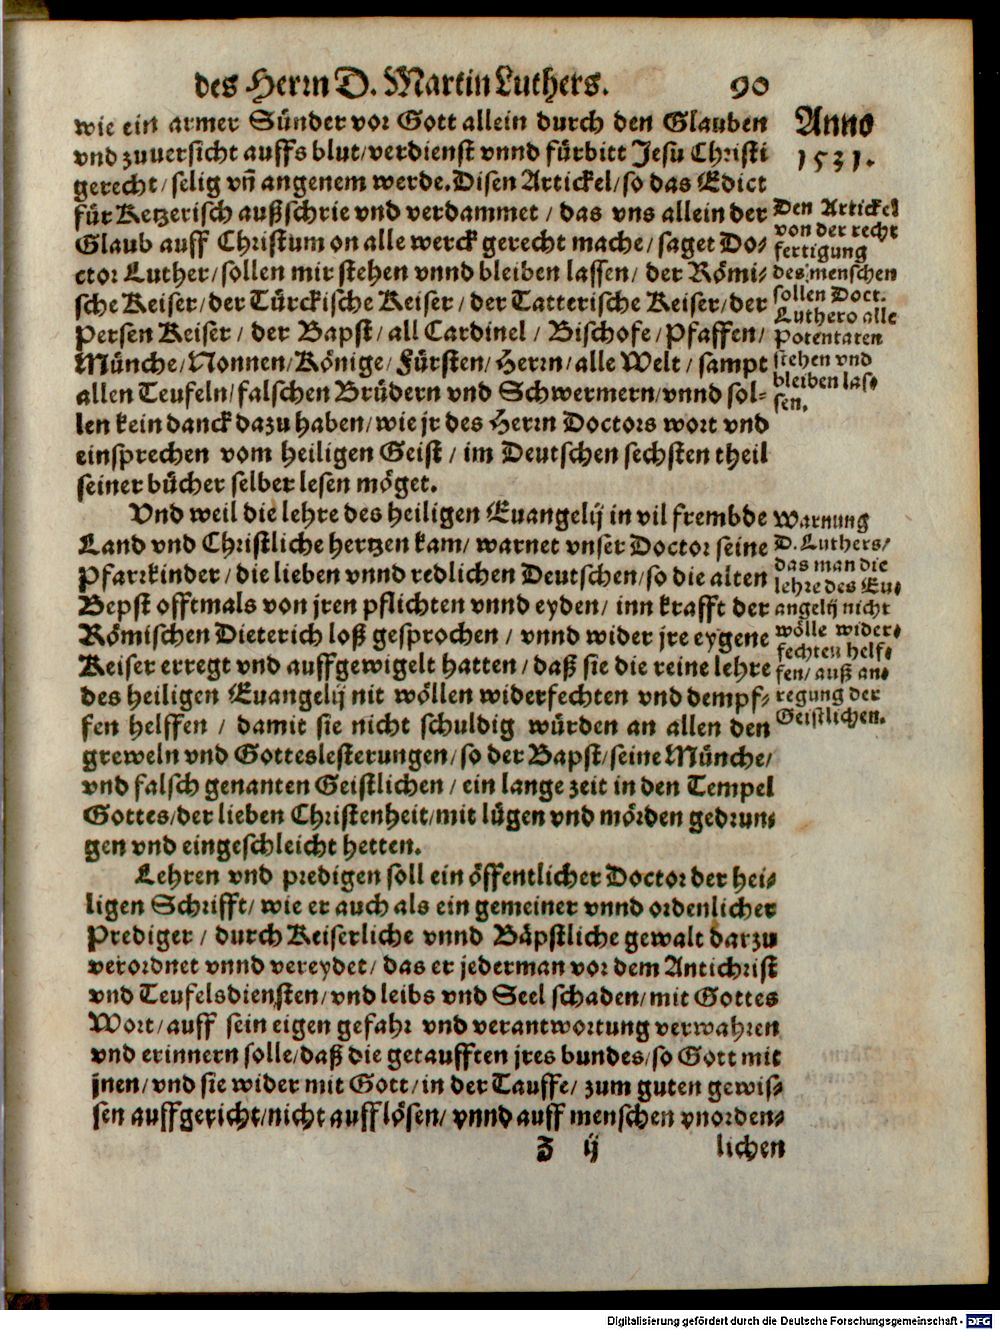 des Herrn D. Martin Luthers. 90
wie ein armer Sünder vor Gott allein durch den Glauben
vnd zuuersicht auffs blut/verdienst vnnd fürbitt Jesu Christi
gerecht/selig vñ angenem werde. Disen Artickel/so das Edict
für Ketzerisch außschrie vnd verdammet / das vns allein der
Glaub auff Christum on alle werck gerecht mache/saget Do⸗
ctor Luther/sollen mir stehen vnnd bleiben lassen/ der Römi⸗
sche Keiser/der Türckische Keiser / der Tatterische Keiser/der
Persen Keiser / der Bapst/ all Cardinel / Bischofe/Pfaffen/
Münche/Nonnen/Könige/Fürsten/Herrn/alle Welt / sampt
allen Teufeln/falschen Brüdern vnd Schwermern/vnnd sol⸗
len kein danck dazu haben/wie jr des Herrn Doctors wort vnd
einsprechen vom heiligen Geist / im Deutschen sechsten theil
seiner bücher selber lesen möget.
Vnd weil die lehre des heiligen Euangelij in vil frembde
Land vnd Christliche hertzen kam/ warnet vnser Doctor seine
Pfarrkinder/die lieben vnnd redlichen Deutschen/so die alten
Bepst offtmals von jren pflichten vnnd eyden/ inn krafft der
Römischen Dieterich loß gesprochen / vnnd wider jre eygene
Keiser erregt vnd auffgewigelt hatten/ daß sie die reine lehre
des heiligen Euangelij nit wöllen widerfechten vnd dempf⸗
fen helffen / damit sie nicht schuldig würden an allen den
greweln vnd Gotteslesterungen/so der Bapst/seine Münche/
vnd falsch genanten Geistlichen / ein lange zeit in den Tempel
Gottes/der lieben Christenheit/mit lügen vnd mörden gedrun⸗
gen vnd eingeschleicht hetten.
Lehren vnd predigen soll ein öffentlicher Doctor der hei⸗
ligen Schrifft/ wie er auch als ein gemeiner vnnd ordenlicher
Prediger / durch Keiserliche vnnd Bäpstliche gewalt darzu
verordnet vnnd vereydet/ das er jederman vor dem Antichrist
vnd Teufelsdiensten/vnd leibs vnd Seel schaden/mit Gottes
Wort/auff sein eigen gefahr vnd verantwortung verwahren
vnd erinnern solle/daß die getaufften jres bundes/so Gott mit
jnen/vnd sie wider mit Gott/in der Tauffe/ zum guten gewis⸗
sen auffgericht/nicht aufflösen/ vnnd auff menschen vnorden⸗
Z ij lichen
Anno
1531.
Den Artickel
von der recht
fertigung
des menschen
sollen Doct.
Luthero alle
Potentaten
stehen vnd
bleiben las⸗
sen.
Warnung
D. Luthers/
das man die
lehre des Eu⸗
angelij nicht
wölle wider⸗
fechten helf⸗
fen/auß an⸗
regung der
Geistlichen.
Digitalisierung gefördert durch die Deutsche Forschungsgemeinschaft - DFG